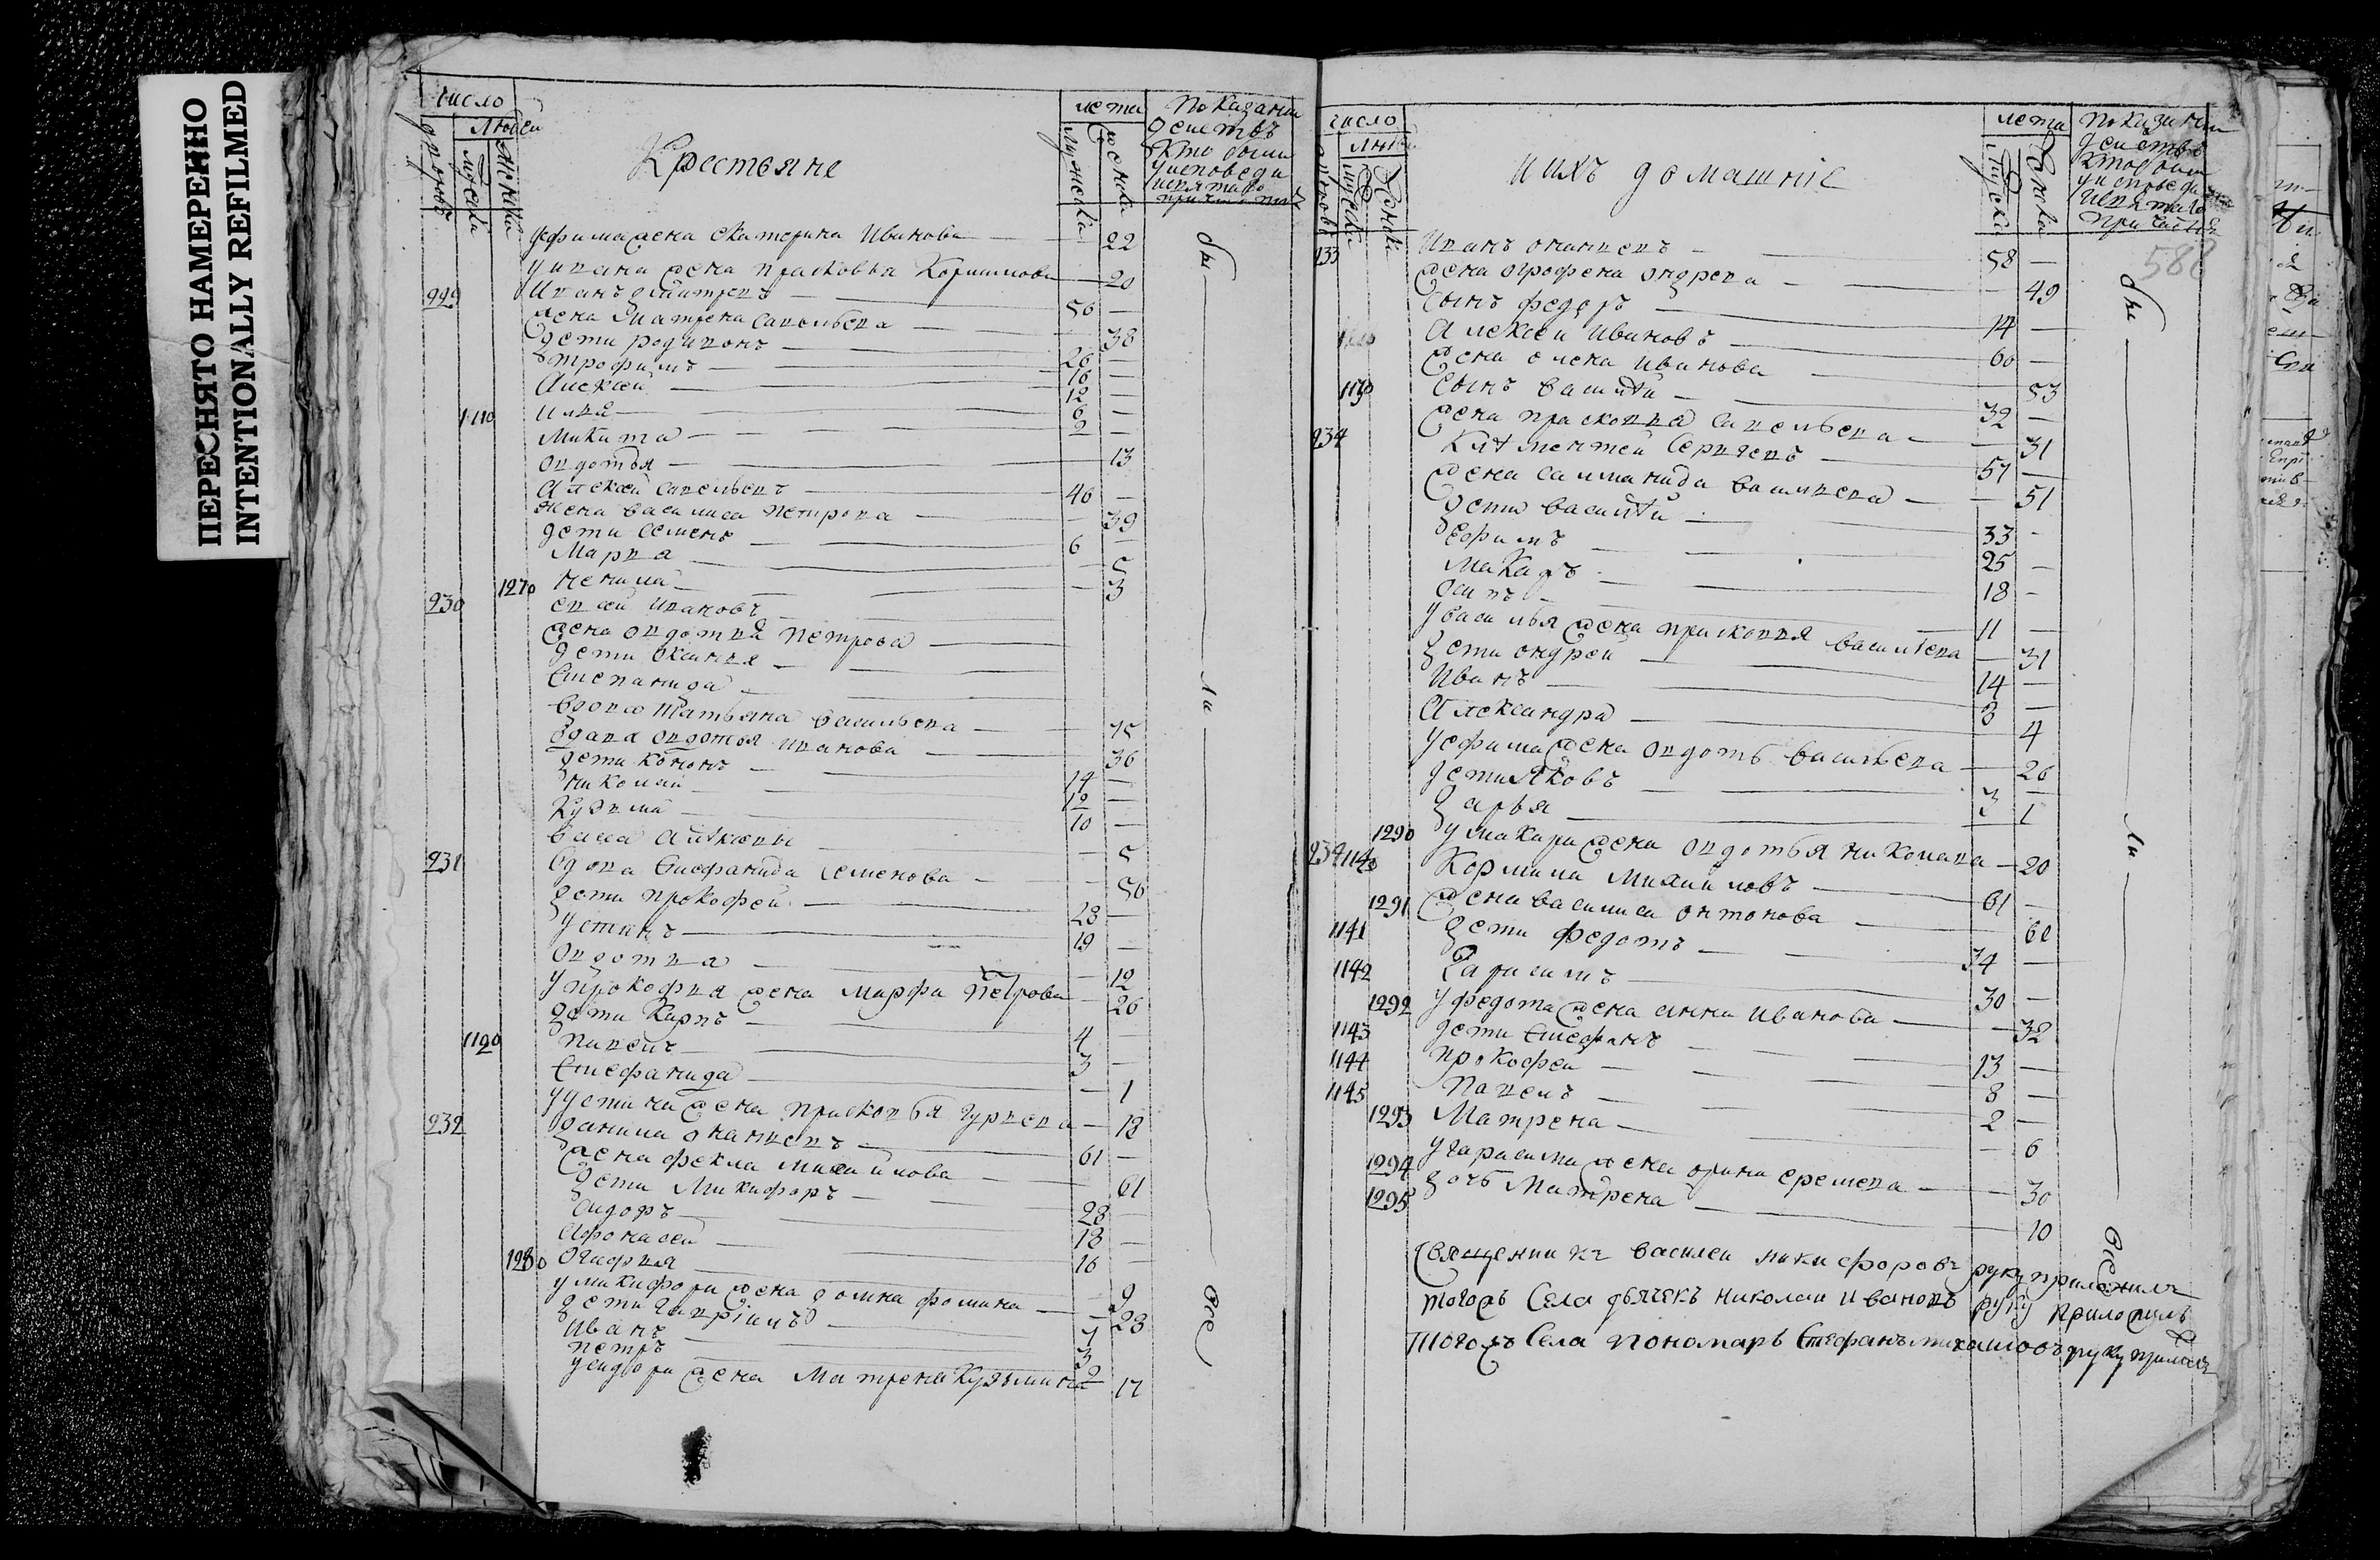 ПЕРЕСНЯТО НАМЕРЕННО
INTENTIONALLY REFILMED
число
людей
дворовъ
мужеска
женска
Крестьяне
лета
мужеска
женска
показани
действъ
кто были
у исповеди
и святаго
причастия
уефима жена екатерина Иванова 22
уивана жена прасковья Корнилова 20
229 Иванъ дмитревъ 56
жена Матрена савельева 38
дети родивонъ 26
трофимъ 16
Алексей 12
1110 илья 6
Микита 2
овдотья 13
Алексей савельевъ 46
жена василиса петрова 39
дети семенъ 6
Марья 5
1270 ненила 3
230 Иванов
жена овдотья петрова
дети оксинья
Степанида
вдова татьяна васильева 75
вдова овдотья иванова 36
дети кононъ 14
николай 12
Кузма 10
5
231 вдова Стефанида семенова 56
дети прокофей 28
устинъ 19
овдотья 12
упрокофья жена марфа петрова 26
дети Карпъ 4
1120 3
Стефанида 1
уустина жена прасковья гурьева 18
232 данила 61
жена фекла михайлова 61
дети Микифоръ 28
сидоръ 18
Афонасей 16
1280 огафья 9
умикифора жена домна фомина 28
дети гаврила 7
иванъ 3
петръ 2
усидора жена Матрена Кузьмина 17
бы
ли
все
число
люд
дворовъ
мужеска
женска
и ихъ домашние
лета
мужеска
женска
показани
действъ
кто были
у исповеди
и святаго
причастия
588
133 Иванъ 58
жена огрофена ондрева 49
сынъ федоръ 14
Алексей Ивановъ 60
жена олена иванова 53
1130 сынъ василей 32
жена прасковья савельева 31
234 Климентей Сергеевъ 57
жена саламанида васильева 51
дети василей 33
ефимъ 25
макаръ 18
осипъ 11
увасилья жена прасковья васильева 31
дети ондрей 14
Иванъ 3
Александра 4
уефима жена овдоть васильева 26
дети Яковъ 3
дарья 1
1290 умакара жена овдотья николаева 20
234 1140 Кормила Михаиловъ 61
1291 жена василиса онтонова 60
1141 дети федотъ 34
1142 Гарасимъ 30
1292 уфедота жена анна иванова 32
1143 дети Стефанъ 13
1144 прокофей 8
1145 Павелъ 2
1293 Матрена 6
1294 угарасима жена орина еремева 30
1295 дочь Матрена 10
бы
ли
все
Священникъ василеи никифоровъ руку приложилъ
тогожъ Села дьячекъ николаи Ивановъ руку приложилъ
Тогожъ Села пономарь Стефанъ михаиловъ руку приложилъ